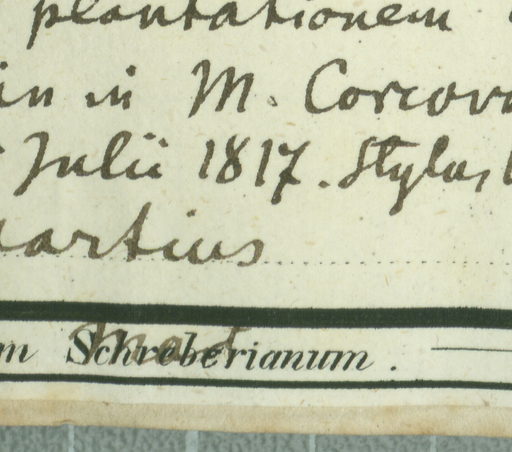 plantationem
in in M. Corcova
Julii 1817. Stylus
artius
m Schreberianum.